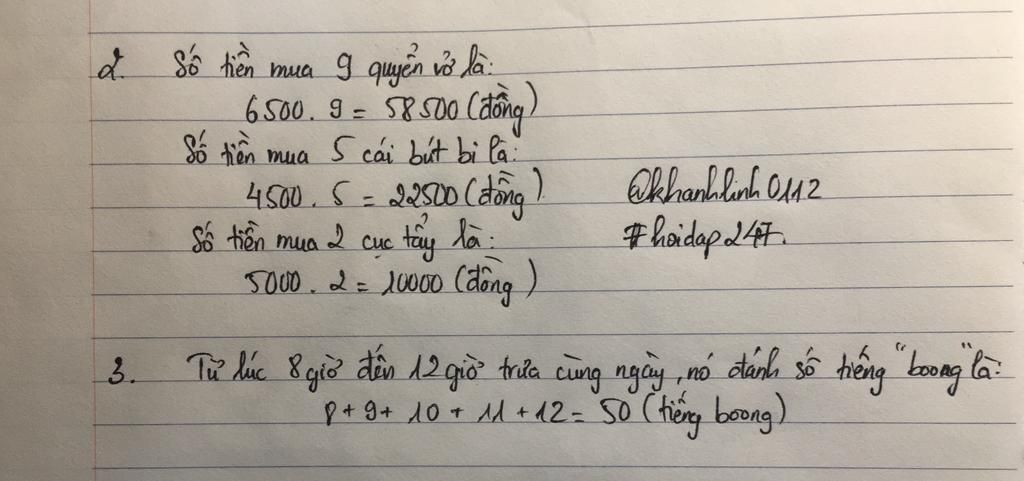 2. Số tiền mua 9 quyển vở là:
6500 . 9 = 58500 (đồng)
Số tiền mua 5 cái bút bi là:
4500 . 5 = 22500 (đồng)
@khanhlinh0112
Số tiền mua 2 cục tẩy là:
#hoidap247.
5000 . 2 = 10000 (đồng)
3. Từ lúc 8 giờ đến 12 giờ trưa cùng ngày, nó đánh số tiếng "boong" là:
8 + 9 + 10 + 11 + 12 = 50 (tiếng boong)